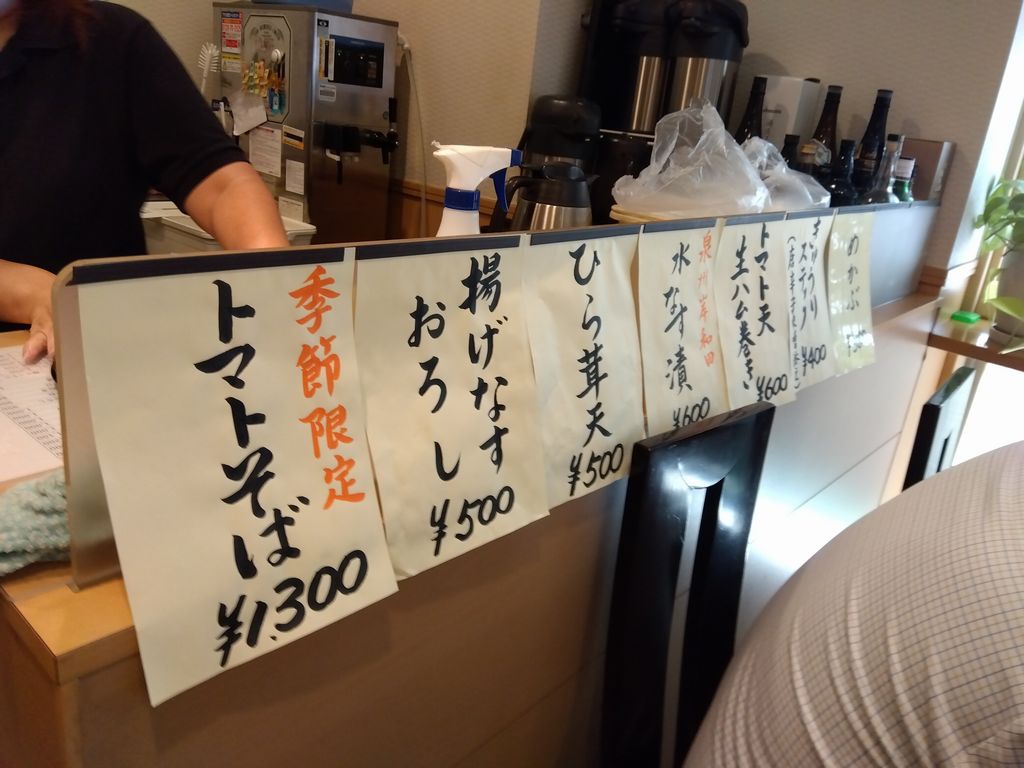 季節限定
トマトそば
¥1,300
揚げなす
おろし
¥500
ひら茸天
¥500
泉州岸和田
水なす漬
¥600
トマト天
生ハム巻き
¥600
きゅうり
スティック
¥400
めかぶ